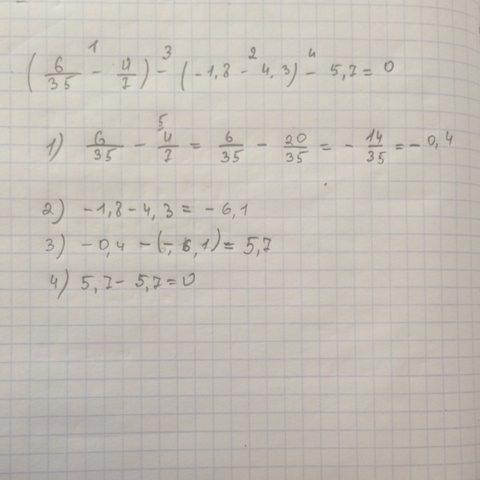 1 3 2 4
(6/35 - 4/7) - (-1,8 - 4,3) - 5,7 = 0
5
1) 6/35 - 4/7 = 6/35 - 20/35 = - 14/35 = - 0,4
2) -1,8 - 4,3 = -6,1
3) -0,4 - (-6,1) = 5,7
4) 5,7 - 5,7 = 0